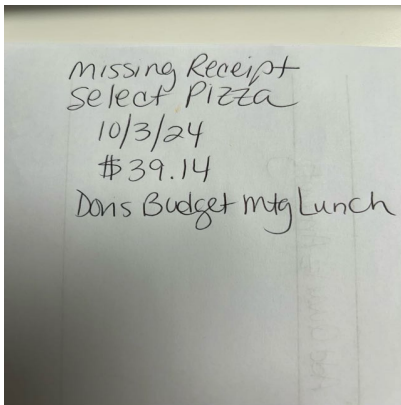 missing Receipt
Select Pizza
10/3/24
$39.14
Dons Budget mtg Lunch